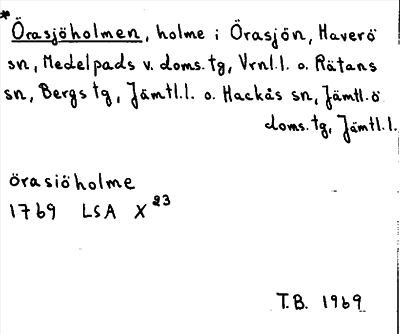 *Örasjöholmen, holme i Örasjön, Haverö
sn, Medelpads v. doms. tg, Vrnl.l. o. Rätans
sn, Bergs tg, Jämtl.l. o. Hackås sn, Jämtl. ö
doms. tg, Jämtl.l.
örasiöholme
1769 LSA X 23
T.B. 1969